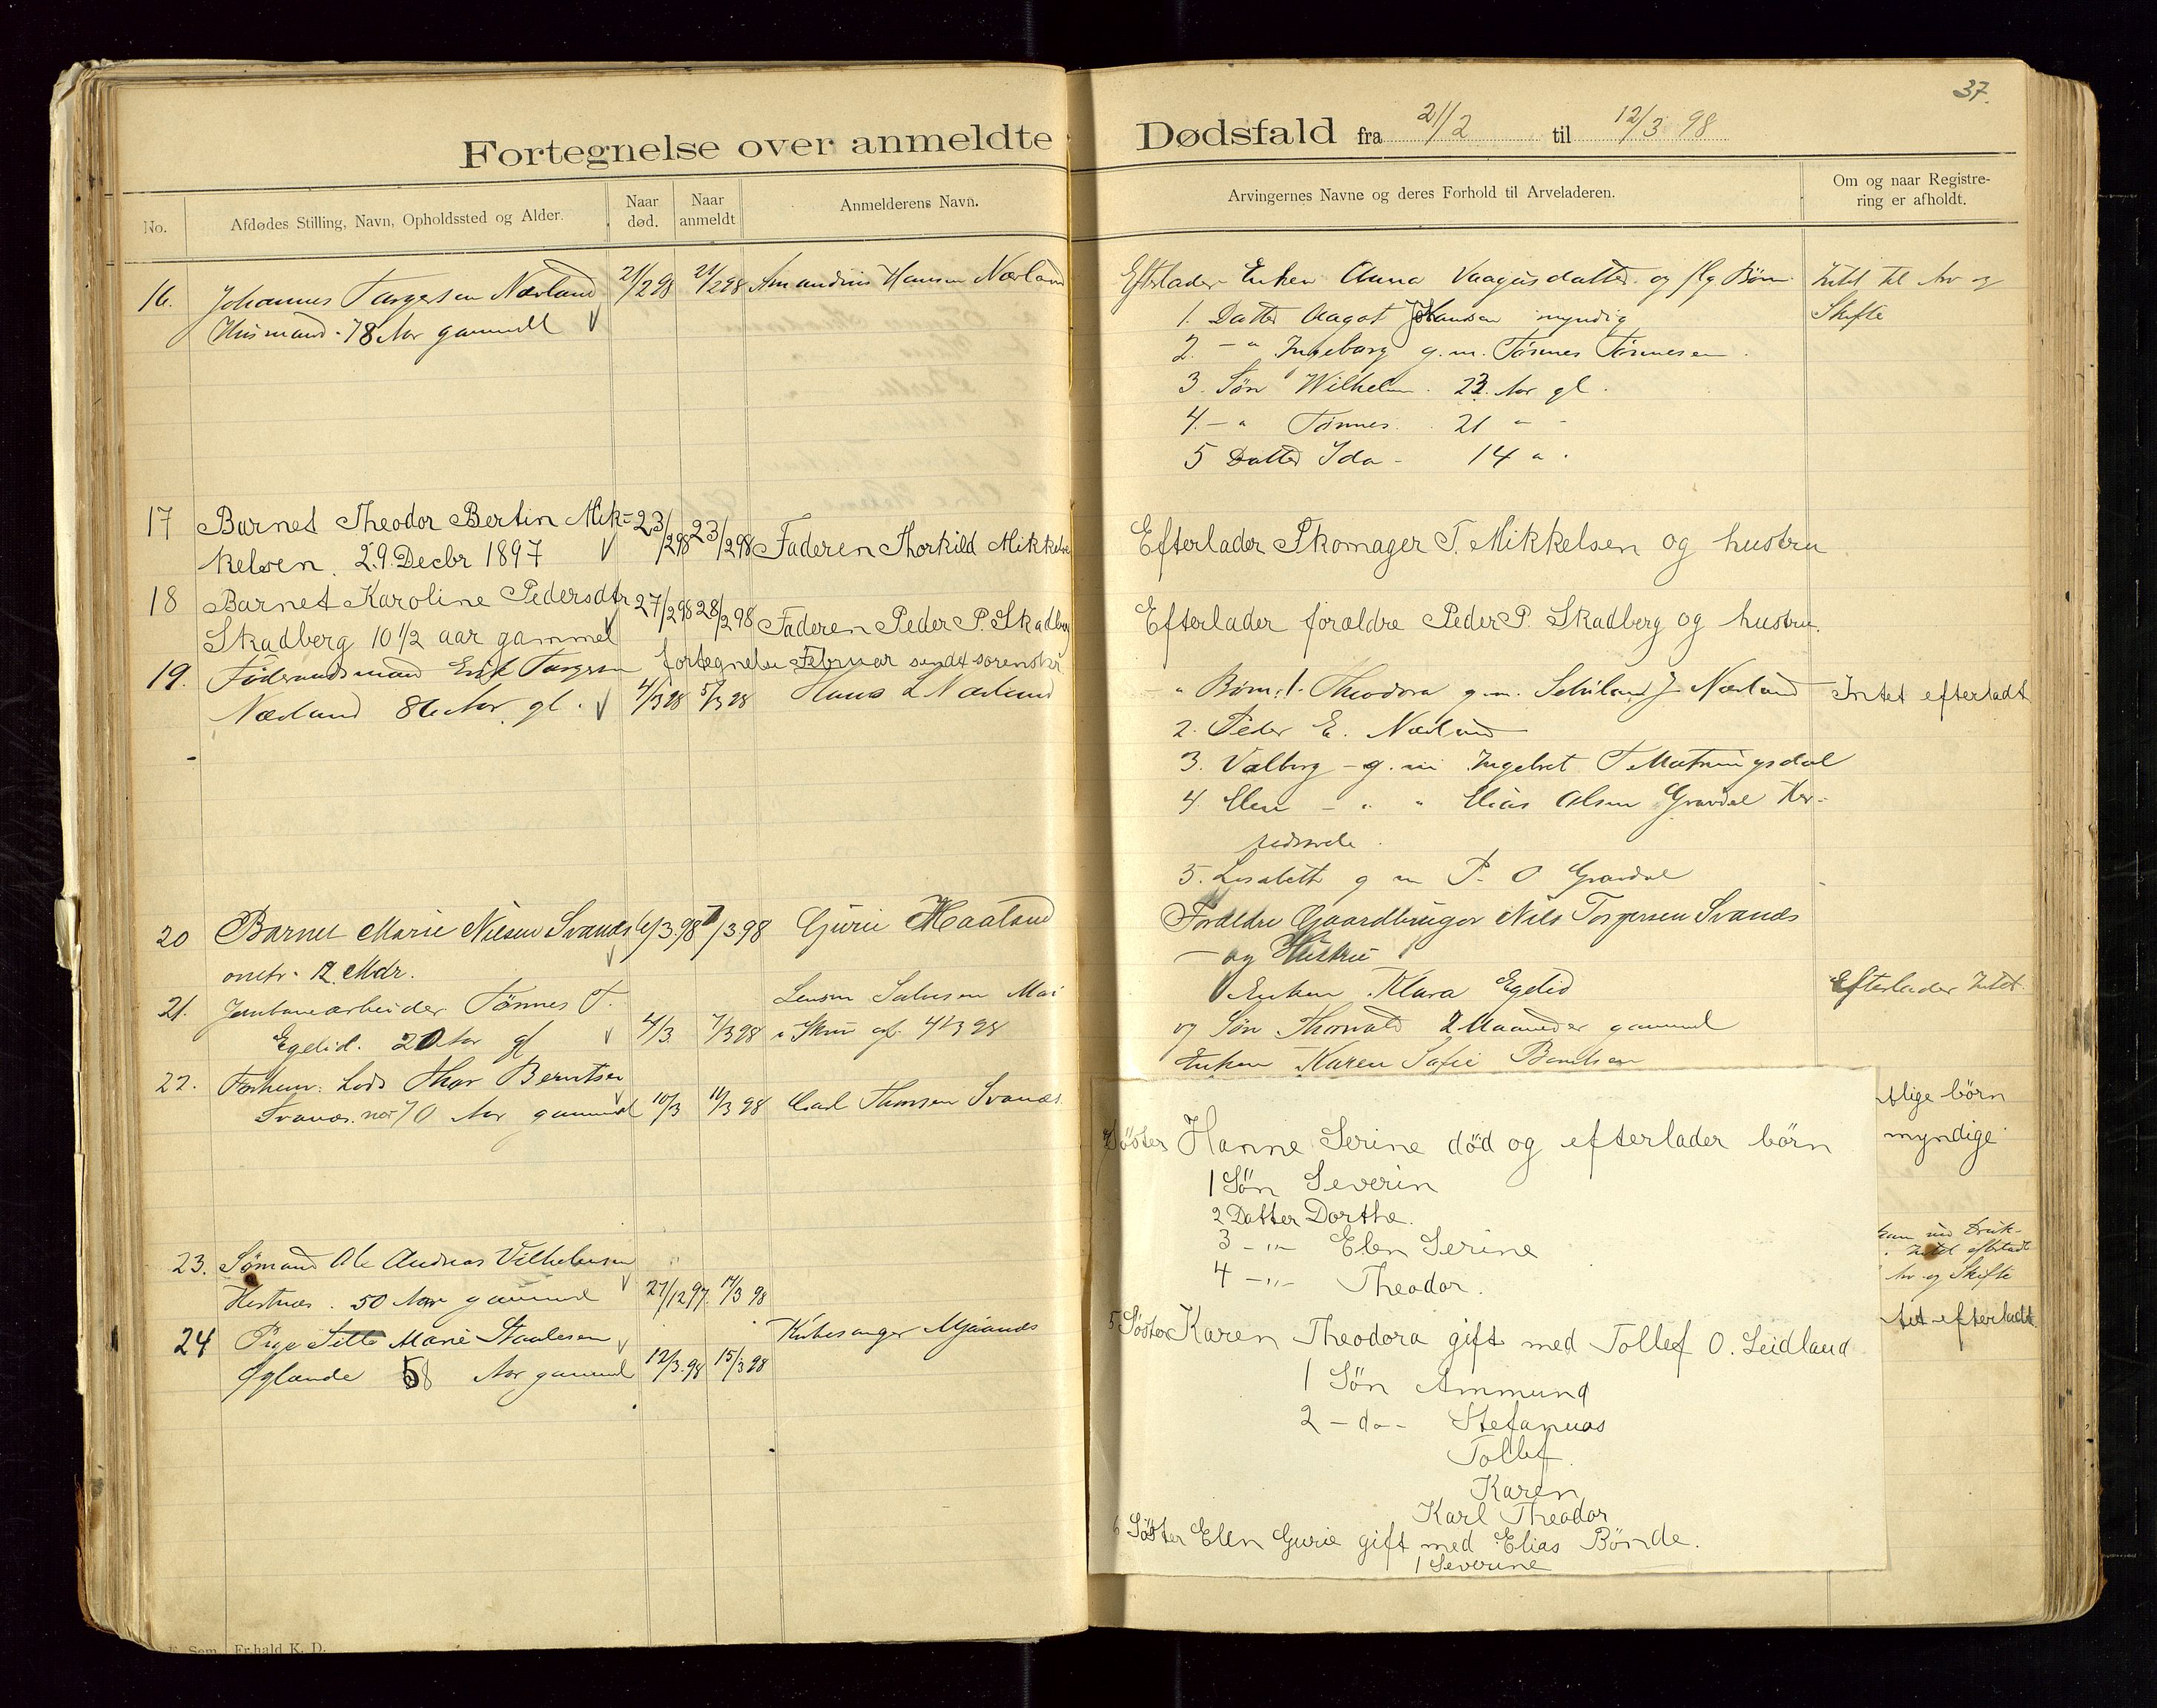 37.
Fortegnelse over anmeldte Dødsfald fra 21/2 til 12/3 98
No.
Afdødes Stilling, Navn, Opholdssted og Alder.
Naar død.
Naar anmeldt
Anmelderens Navn.
Arvingernes Navne og deres Forhold til Arveladeren.
Om og naar Registre-
ring er afholdt.
16. Johannes Torgersen Nærland 21/2 98 21/2 98 Amandius Hansen Nærland
Husmand. 78 Aar gammell
Efterlader Enken Anna Vaagesdatter og flg Børn
1. Datter Aagot Johansen myndig
2. - " Ingeborg g.m. Tønnes Tønnesen
3. Søn Wilhelm. 23. Aar gl.
4. - " Tønnes. 21 " -
5 Datter Ida - 14 " .
Intet til Arv og
Skifte
17 Barnet Theodor Bertin Mik- 23/2 98 23/2 98 Faderen Thorkild Mikkelse
kelsen. 29. Decbr 1897
Efterlader Skomager T. Mikkelsen og hustru
18 Barnet Karoline Pedersdtr 27/2 98 28/2 98 Faderen Peder P. Skadberg
Skadberg 10 1/2 aar gammel
Efterlader forældre Peder P. Skadberg og hustru.
fortegnelse Februar sendt sorenskr
19. Føderaadsmand Erik Torgersen
Nærland 86 Aar gl. 4/3 98 5/3 98 Hans L Nærland
" Børn: 1. Theodora g.m. J. Nærland
2. Peder E. Nærland
3. Valborg - g. m Ingebret T Matningsdal
4 Elen - " " Elias Olsen Gravdal Her-
5. Lisabeth g m P. O Gravdal
Intet efterladt
20 Barnet Marie Nilsen Svanæs 6/3.98 7/3 98 Gurie Haaland
omtr. 12 Mdr.
Forældre Gaardbruger Nils Torgersen Svanæs
- og Hustru
21. Jernbanearbeider Tønnes T.
Egelid. 20 Aar gl 4/3 7/3 98
Enken Klara Egelid
og Søn Thorvald 2 Maaneder gammel
Efterlader Intet.
22. Forhenv: Lods Thor Berntsen
Svanæs. 70 Aar gammel 10/3 11/3 98 Carl Thorsen Svanæs.
Enken Karen Sofie Berntsen
tlige børn
myndige
4 Søster Hanne Serine død og efterlader børn
1 Søn Severin
2 Datter Dorthe.
3 - " - Elen Serine
4 - " - Theodor.
5 Søster Karen Theodora gift med Tollef O. Leidland
1 Søn Ammund
2 - do - Stefanuas
Tollef
Karen
Karl Theodor
6 Søster Elen Gurie gift med Elias Bønde.
1 Severine
23. Sømand Ole Andreas Vilhelmsen
Hestnæs. 50 Aar gammel 27/12 97. 14/3 98
Intet efterladt
Arv og Skifte
24 Pige Marie Staalesen
Øglænde 58 Aar gammel 12/3.98 15/3 98
Kirkesanger Mjaanes
tet efterladt.